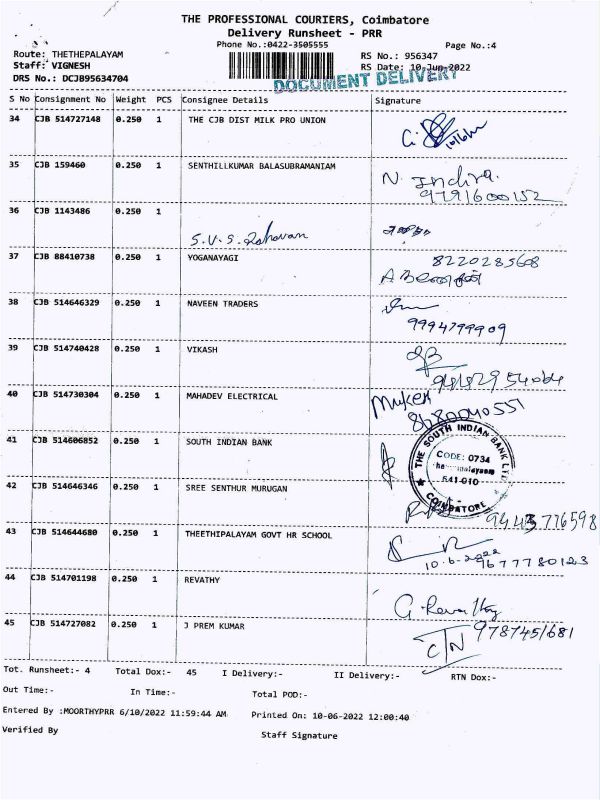 THE PROFESSIONAL COURIERS, Coimbatore
Delivery Runsheet - PRR
Phone No.:0422-3505555
Page No.:4
Route: THETHEPALAYAM
RS No.: 956347
Staff: VIGNESH
RS Date: 10-Jun-2022
DRS No.: DCJB95634704
DOCUMENT DELIVERY
S No Consignment No Weight PCS Consignee Details Signature
34 CJB 514727148 0.250 1 THE CJB DIST MILK PRO UNION
35 CJB 159460 0.250 1 SENTHILLKUMAR BALASUBRAMANIAM N. Indira.
9791600152
36 CJB 1143486 0.250 1
S.V.S. Raharan
37 CJB 88410738 0.250 1 YOGANAYAGI 8220285608
38 CJB 514646329 0.250 1 NAVEEN TRADERS
9994799909
39 CJB 514740428 0.250 1 VIKASH
40 CJB 514730304 0.250 1 MAHADEV ELECTRICAL Mukesh
8680040551
41 CJB 514606852 0.250 1 SOUTH INDIAN BANK
THE SOUTH INDIAN BANK LTD
CODE: 0734
641 010
COIMBATORE
42 CJB 514646346 0.250 1 SREE SENTHUR MURUGAN
9443776598
43 CJB 514644680 0.250 1 THEETHIPALAYAM GOVT HR SCHOOL
10.6.2022
9677780123
44 CJB 514701198 0.250 1 REVATHY
G. Revathy
45 CJB 514727082 0.250 1 J PREM KUMAR 9787451681
CTN
Tot. Runsheet:- 4 Total Dox:- 45 I Delivery:- II Delivery:- RTN Dox:-
Out Time:- In Time:- Total POD:-
Entered By :MOORTHYPRR 6/10/2022 11:59:44 AM Printed On: 10-06-2022 12:00:40
Verified By Staff Signature